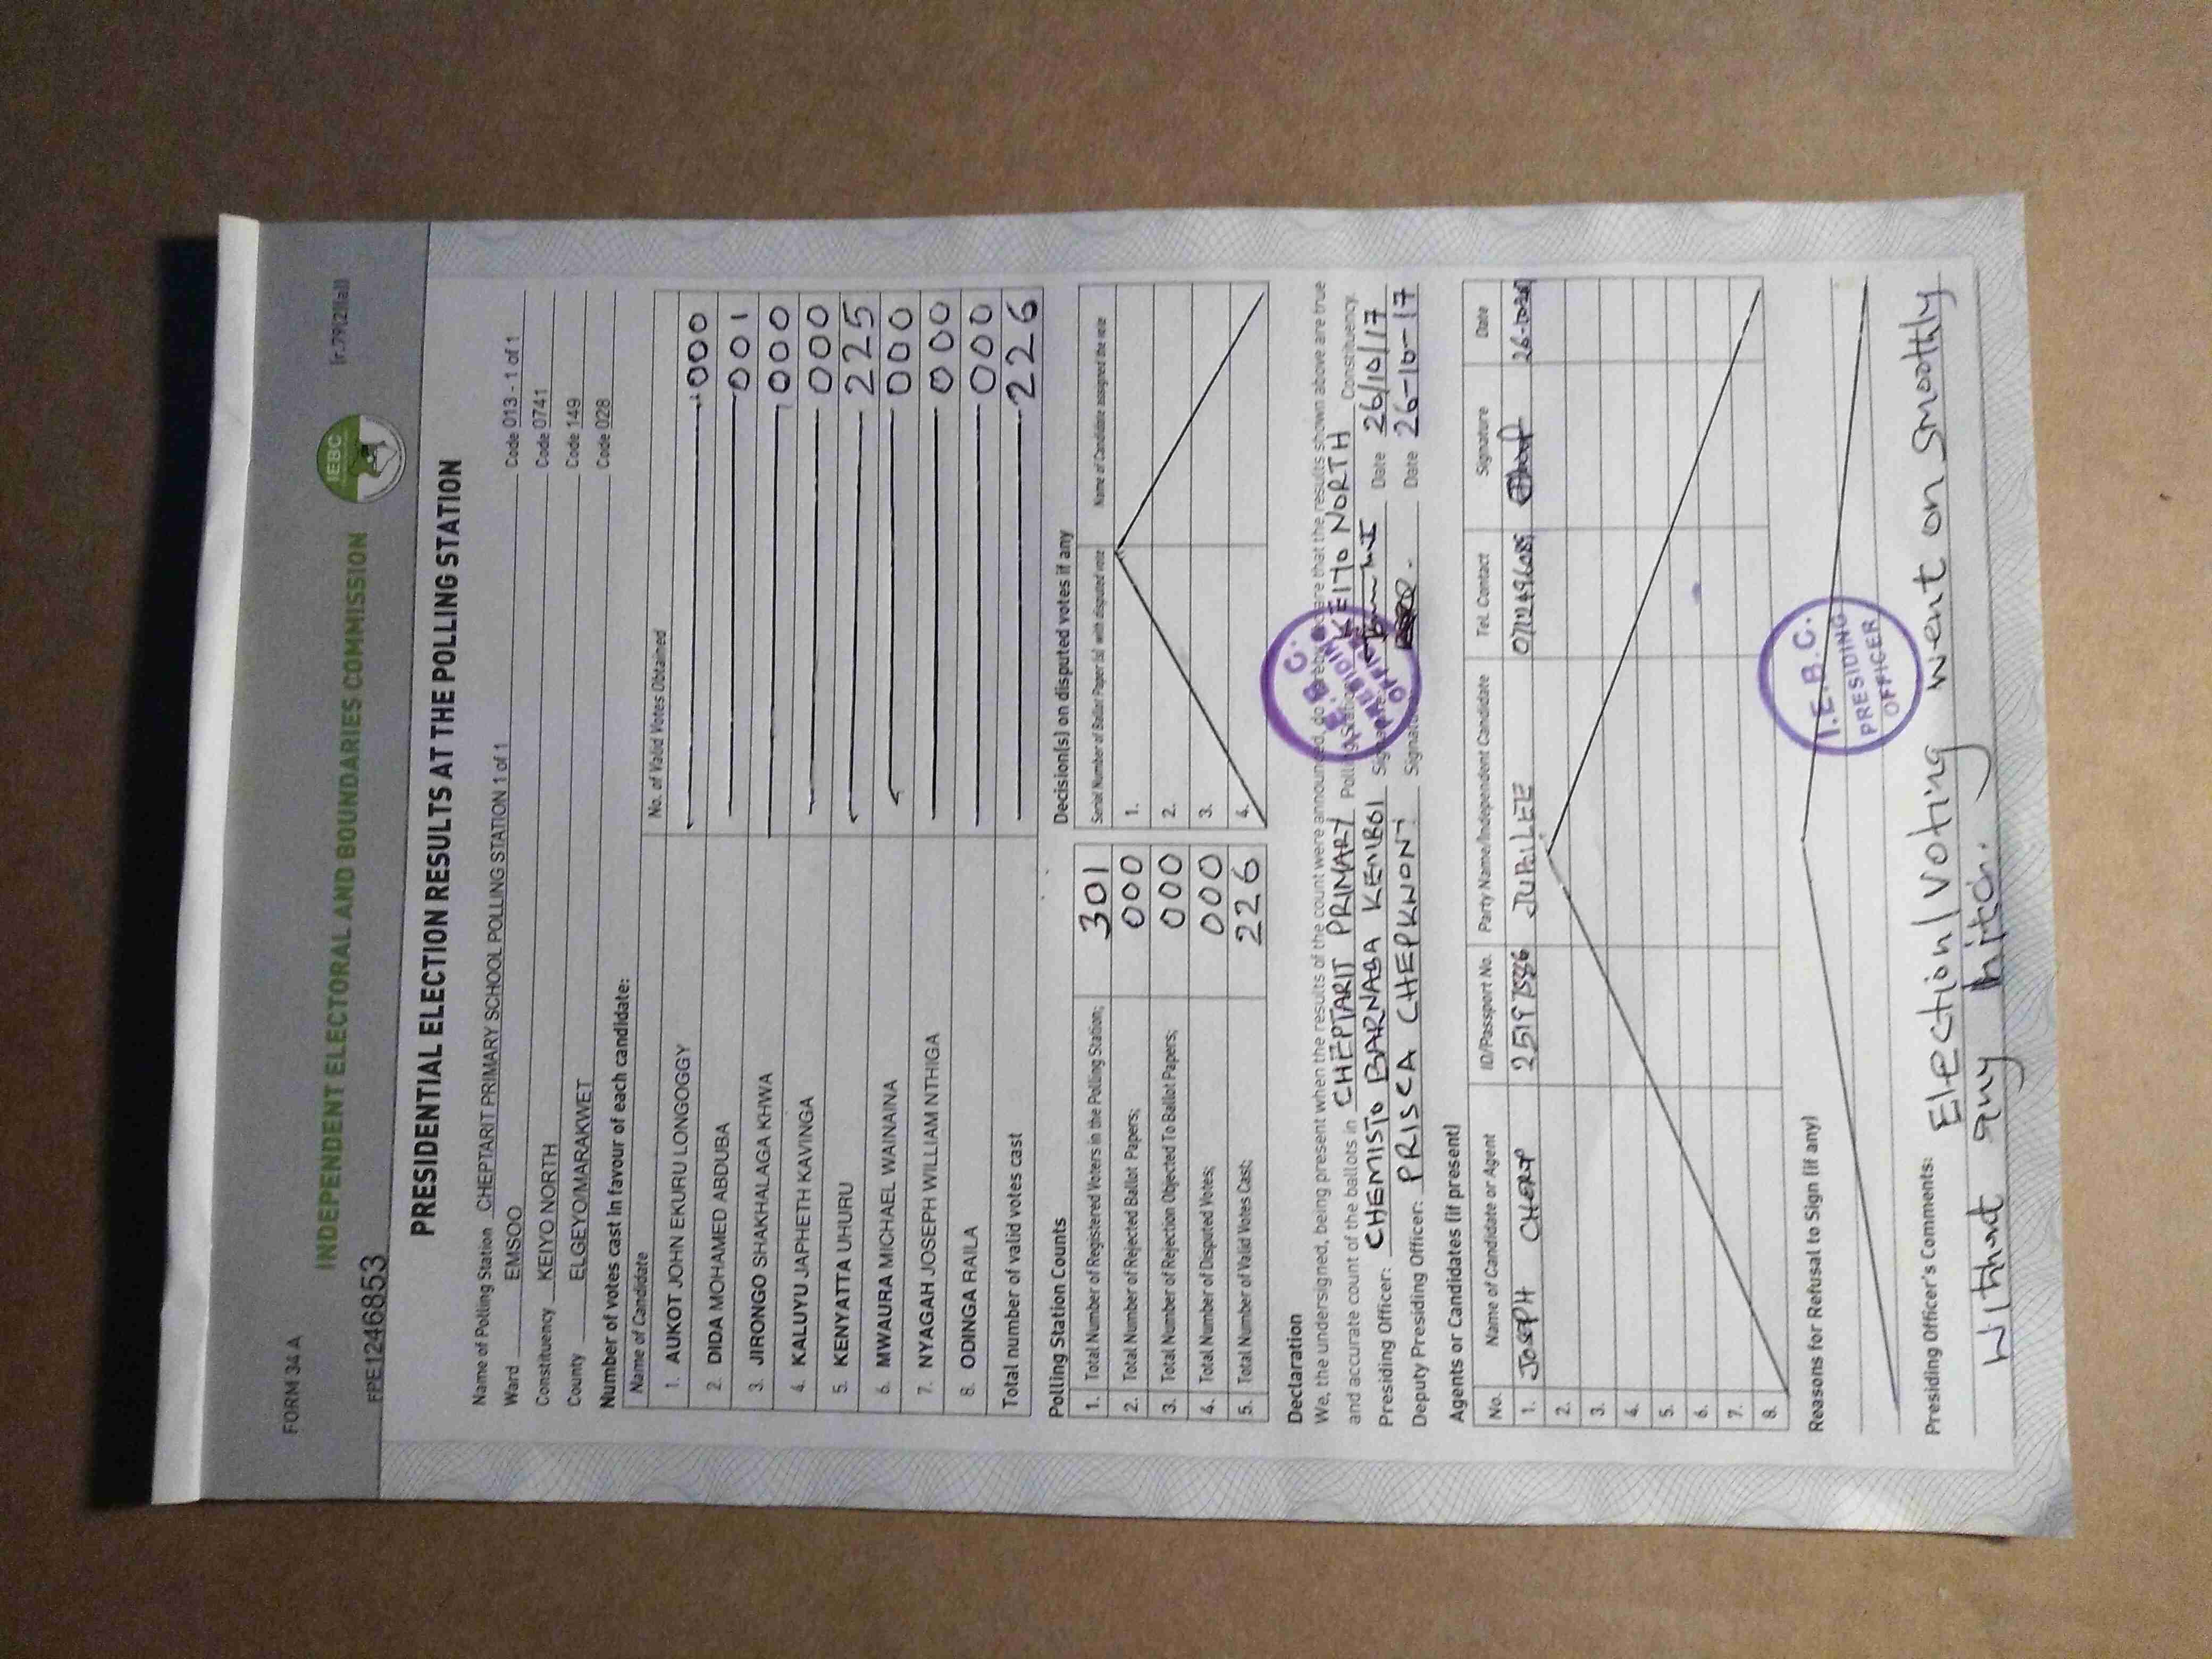 FORM 34 A
INDEPENDENT ELECTORAL AND BOUNDARIES COMMISSION
IEBC
(r.79(2)(a))
FPE1246853
PRESIDENTIAL ELECTION RESULTS AT THE POLLING STATION
Name of Polling Station CHEPTARIT PRIMARY SCHOOL POLLING STATION 1 of 1 Code 013 - 1 of 1
Ward EMSOO Code 0741
Constituency KEIYO NORTH Code 149
County ELGEYO/MARAKWET Code 028
Number of votes cast in favour of each candidate:
Name of Candidate No. of Valid Votes Obtained
1. AUKOT JOHN EKURU LONGOGGY 000
2. DIDA MOHAMED ABDUBA 001
3. JIRONGO SHAKHALAGA KHWA 000
4. KALUYU JAPHETH KAVINGA 000
5. KENYATTA UHURU 225
6. MWAURA MICHAEL WAINAINA 000
7. NYAGAH JOSEPH WILLIAM NTHIGA 000
8. ODINGA RAILA 000
Total number of valid votes cast 226
Polling Station Counts
1. Total Number of Registered Voters in the Polling Station; 301
2. Total Number of Rejected Ballot Papers; 000
3. Total Number of Rejection Objected To Ballot Papers; 000
4. Total Number of Disputed Votes; 000
5. Total Number of Valid Votes Cast; 226
Decision(s) on disputed votes if any
Serial Number of Ballot Paper (s) with disputed vote Name of Candidate assigned the vote
1.
2.
3.
4.
Declaration
We, the undersigned, being present when the results of the count were announced, do hereby declare that the results shown above are true
and accurate count of the ballots in CHEPTARIT PRIMARY Polling Station KEIYO NORTH Constituency.
Presiding Officer: CHEMISTO BARNABA KEMBOI Signature Date 26/10/17
Deputy Presiding Officer: PRISCA CHEPKWONY Signature Date 26-10-17
I.E.B.C. PRESIDING OFFICER
Agents or Candidates (if present)
No. Name of Candidate or Agent ID/Passport No. Party Name/Independent Candidate Tel. Contact Signature Date
1. JOSEPH JUBILEE
2.
3.
4.
5.
6.
7.
8.
Reasons for Refusal to Sign (if any)
I.E.B.C.
PRESIDING
OFFICER
Presiding Officer's Comments: Election/Voting went on smoothly
without any hitch.